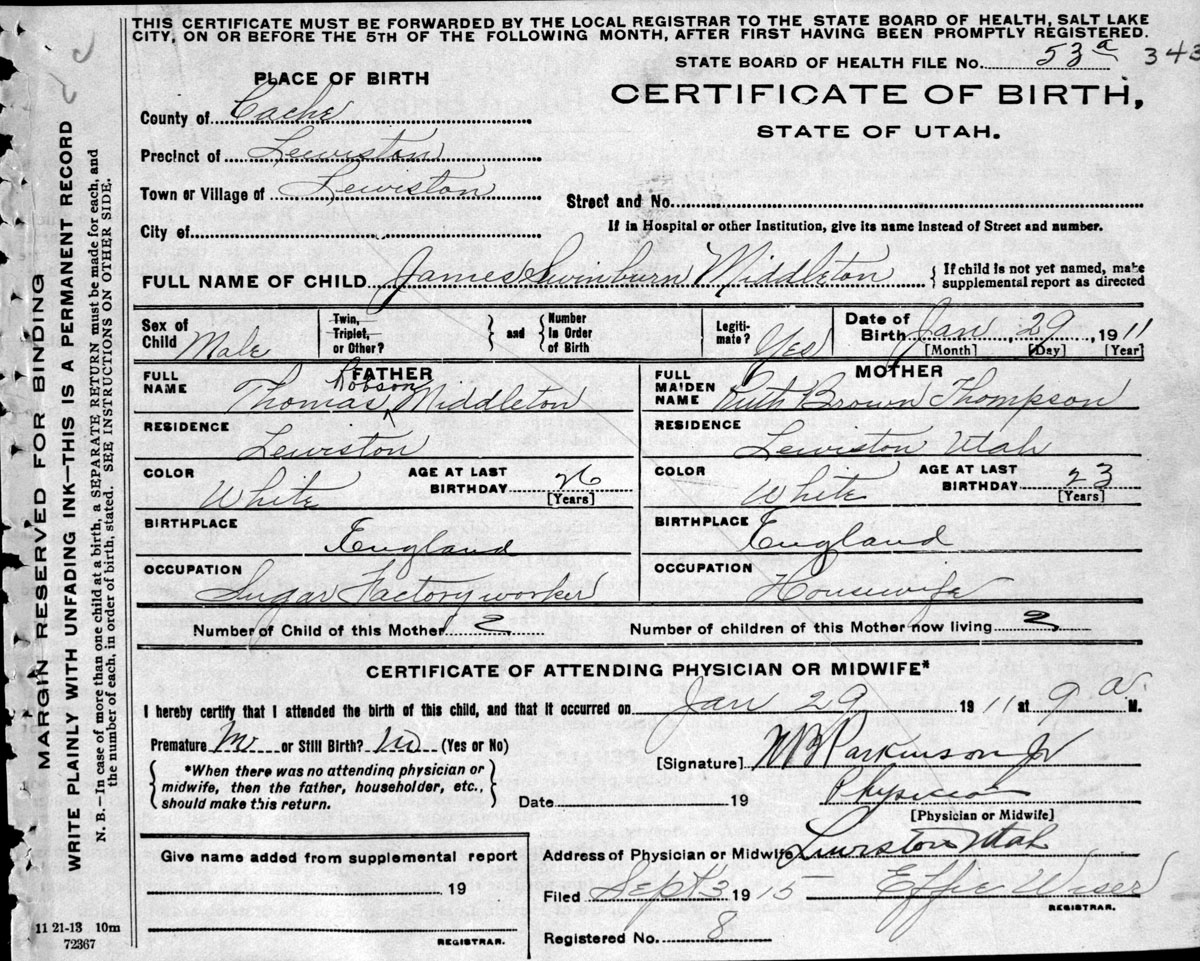 THIS CERTIFICATE MUST BE FORWARDED BY THE LOCAL REGISTRAR TO THE STATE BOARD OF HEALTH, SALT LAKE
CITY, ON OR BEFORE THE 5TH OF THE FOLLOWING MONTH, AFTER FIRST HAVING BEEN PROMPTLY REGISTERED.
STATE BOARD OF HEALTH FILE No. 53a 343
PLACE OF BIRTH
CERTIFICATE OF BIRTH,
STATE OF UTAH.
County of Cache
Precinct of Lewiston
Town or Village of Lewiston
Street and No.
City of
If in Hospital or other Institution, give its name instead of Street and number.
FULL NAME OF CHILD James Swinburn Middleton { If child is not yet named, make
supplemental report as directed
Sex of Child Male
Twin, Triplet, or Other? } and { Number in Order of Birth
Legitimate? Yes
Date of Birth Jan 29, 1911
[Month] [Day] [Year]
FATHER
FULL NAME Thomas Robson Middleton
RESIDENCE Lewiston
COLOR White AGE AT LAST BIRTHDAY 26
[Years]
BIRTHPLACE England
OCCUPATION Sugar Factory worker
MOTHER
FULL MAIDEN NAME Ruth Brown Thompson
RESIDENCE Lewiston Utah
COLOR White AGE AT LAST BIRTHDAY 23
[Years]
BIRTHPLACE England
OCCUPATION Housewife
Number of Child of this Mother 2 Number of children of this Mother now living 2
CERTIFICATE OF ATTENDING PHYSICIAN OR MIDWIFE*
I hereby certify that I attended the birth of this child, and that it occurred on Jan 29 1911 at 9 a. M.
Premature No or Still Birth? No (Yes or No)
{ *When there was no attending physician or
midwife, then the father, householder, etc.,
should make this return. }
[Signature] W B Parkinson Jr
Date 19 Physician
[Physician or Midwife]
Address of Physician or Midwife Lewiston Utah
Filed Sept 3 1915 Effie Wiser
REGISTRAR.
Registered No. 8
Give name added from supplemental report
19
REGISTRAR.
MARGIN RESERVED FOR BINDING
WRITE PLAINLY WITH UNFADING INK—THIS IS A PERMANENT RECORD
N. B.—In case of more than one child at a birth, a SEPARATE RETURN must be made for each, and
the number of each, in order of birth, stated. SEE INSTRUCTIONS ON OTHER SIDE.
11 21-13 10m
72367